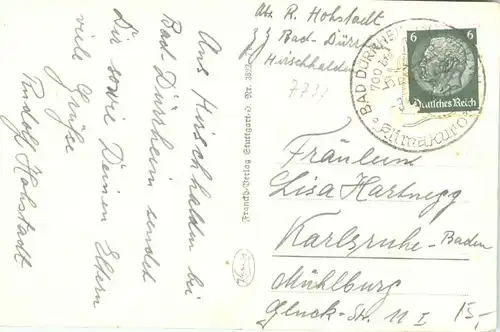 Aus Hirschhalden bei
Bad-Dürrheim sendet
Dir sowie Deinen Eltern
viele Grüße
Rudolf Hohstadt
Franckh-Verlag Stuttgart-O. Nr.
Abs. R. Hohstadt
Bad-Dürrh
Hirschhalden
7732
BAD DÜRRHEIM
700
6
6
Deutsches Reich
Fräulein
Lisa Hartnegg
Karlsruhe-Baden
Mühlburg
Gluck-Str. 11 I
15,-